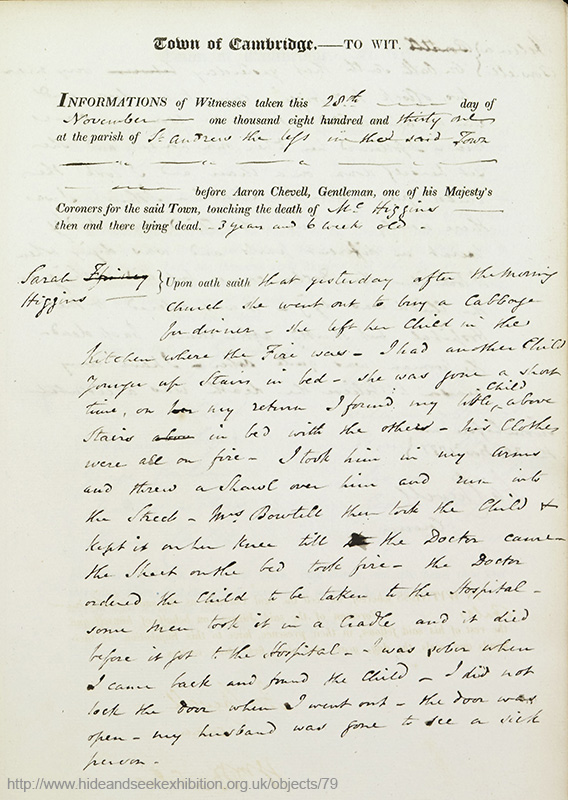 Town of Cambridge.—TO WIT.
INFORMATIONS of Witnesses taken this 28th day of
November one thousand eight hundred and thirty one
at the parish of St Andrews the less in the said Town
before Aaron Chevell, Gentleman, one of his Majesty's
Coroners for the said Town, touching the death of Higgins
then and there lying dead. - 3 years and 6 week old -
Sarah
Higgins
Upon oath saith that yesterday after the morning
Church she went out to buy a Cabbage
for dinner - she left her Child in the
Kitchen where the Fire was - I had another Child
Younger up Stairs in bed - she was gone a short
time, on my return I found my little Child above
Stairs in bed with the others - his Clothes
were all on fire - I took him in my Arms
and threw a Shawl over him and run into
the Street - Mrs Bowtell then took the Child &
kept it on her Knee till the Doctor came -
the Sheet on the bed took fire - the Doctor
ordered the Child to be taken to the Hospital -
some men took it in a Cradle and it died
before it got to the Hospital - I was sober when
I came back and found the Child - I did not
lock the door when I went out - the door was
open - my husband was gone to see a sick
person -
http://www.hideandseekexhibition.org.uk/objects/79